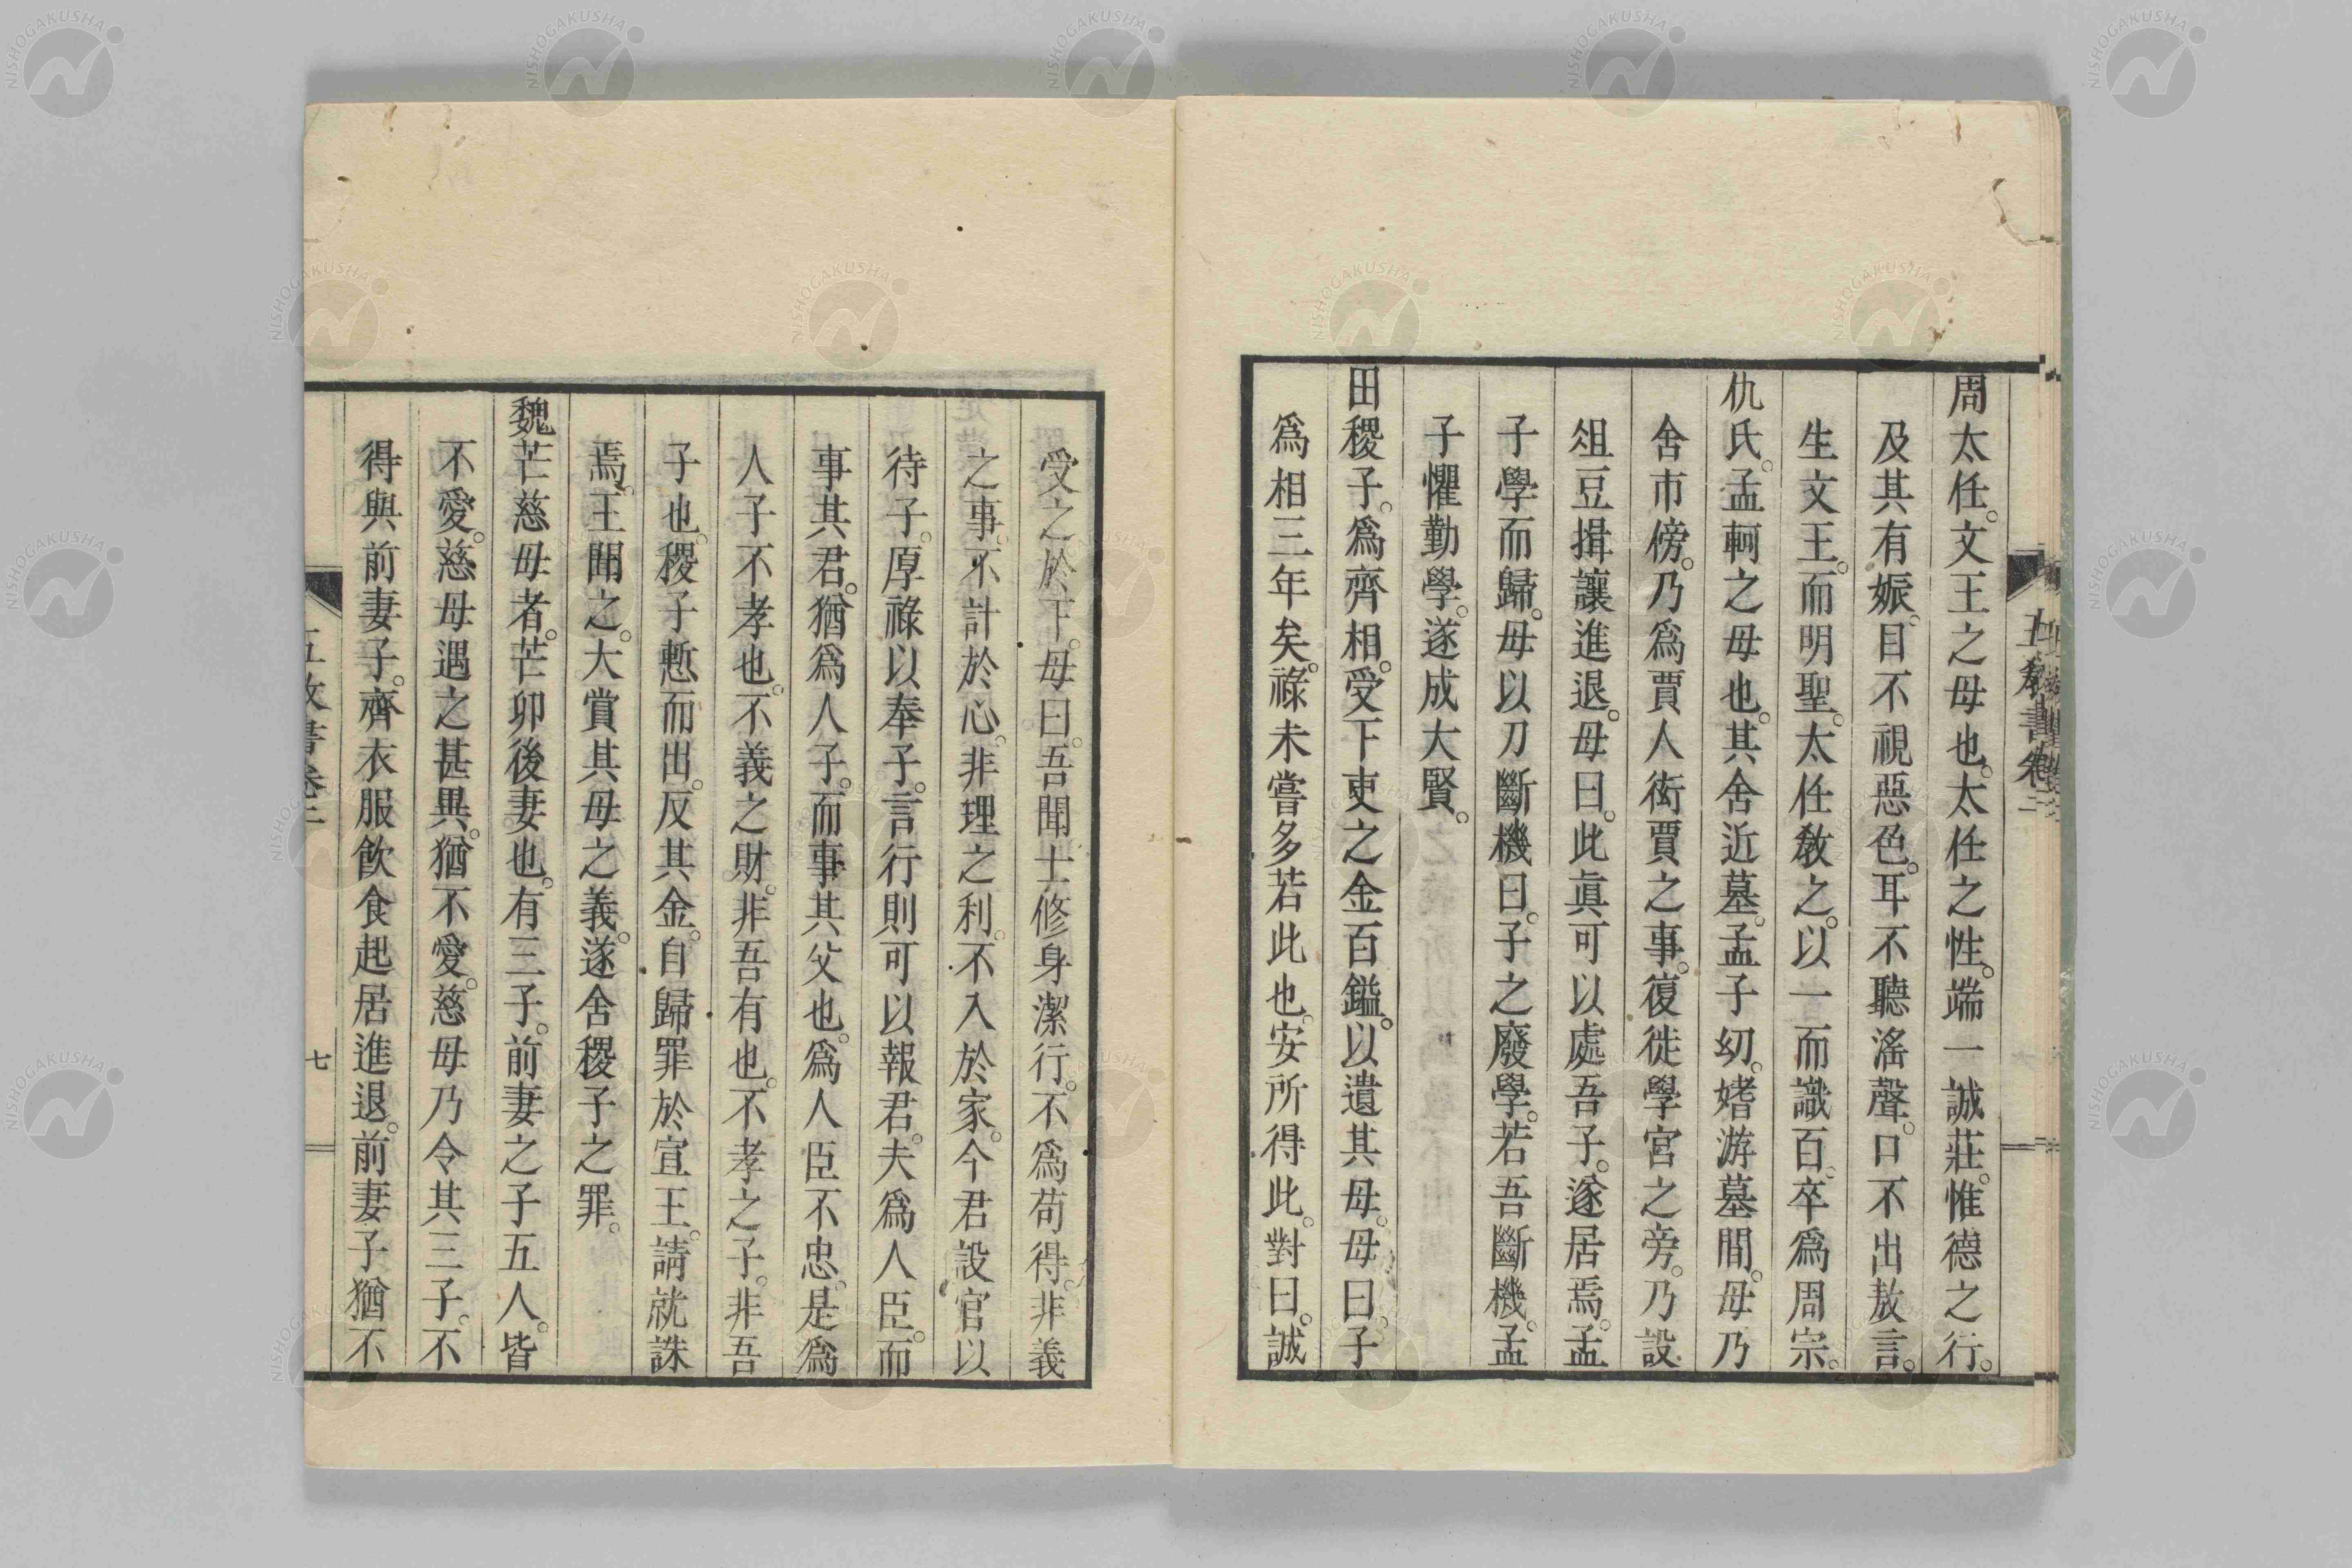 周太任。文王之母也。太任之性。端一誠莊。惟德之行。
及其有娠。目不視惡色。耳不聽滛聲。口不出敖言。
生文王。而明聖。太任敎之。以一而識百。卒爲周宗。
仇氏。孟軻之母也。其舍近墓。孟子幼。嬉游墓間。母乃
舍市傍。乃爲賈人衒賈之事。復徙學宮之旁。乃設
俎豆揖讓進退。母曰。此眞可以處吾子。遂居焉。孟
子學而歸。母以刀斷機曰。子之廢學。若吾斷機。孟
子懼勤學。遂成大賢。
田稷子。爲齊相。受下吏之金百鎰。以遺其母。母曰。子
爲相三年矣。祿未嘗多若此也。安所得此。對曰。誠
受之於下。母曰。吾聞士修身潔行。不爲苟得。非義
之事。不計於心。非理之利。不入於家。今君設官以
待子。厚祿以奉子。言行則可以報君。夫爲人臣。而
事其君。猶爲人子。而事其父也。爲人臣不忠。是爲
人子不孝也。不義之財。非吾有也。不孝之子。非吾
子也。稷子慙而出。反其金。自歸罪於宣王。請就誅
焉。王聞之。大賞其母之義。遂舍稷子之罪。
魏芒慈母者。芒卯後妻也。有三子。前妻之子五人。皆
不愛。慈母遇之甚異。猶不愛。慈母乃令其三子。不
得與前妻子。齊衣服飮食起居進退。前妻子猶不
五敎書卷二
七
NISHOGAKUSHA